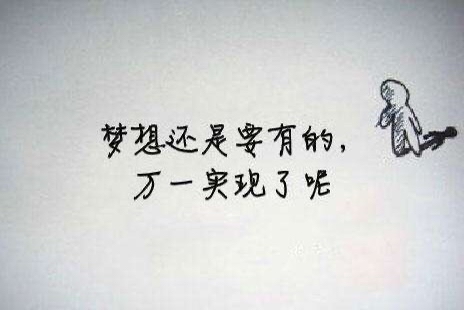 梦想还是要有的,
万一实现了呢